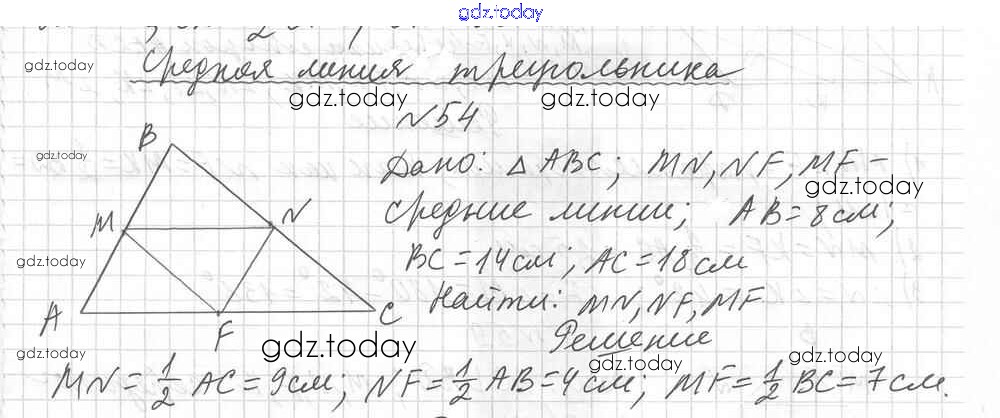 gdz.today
Средная линия треугольника
gdz.today
gdz.today gdz.today
№54
B
gdz.today
Дано: △ABC; MN, NF; MF –
gdz.today
M N
средние линии; AB = 8 см;
gdz.today
BC = 14 см; AC = 18 см
A F C
Найти: MN, NF, MF
Решение
gdz.today gdz.today gdz.today gdz.today
MN = 1/2 AC = 9 см; NF = 1/2 AB = 4 см; MF = 1/2 BC = 7 см.